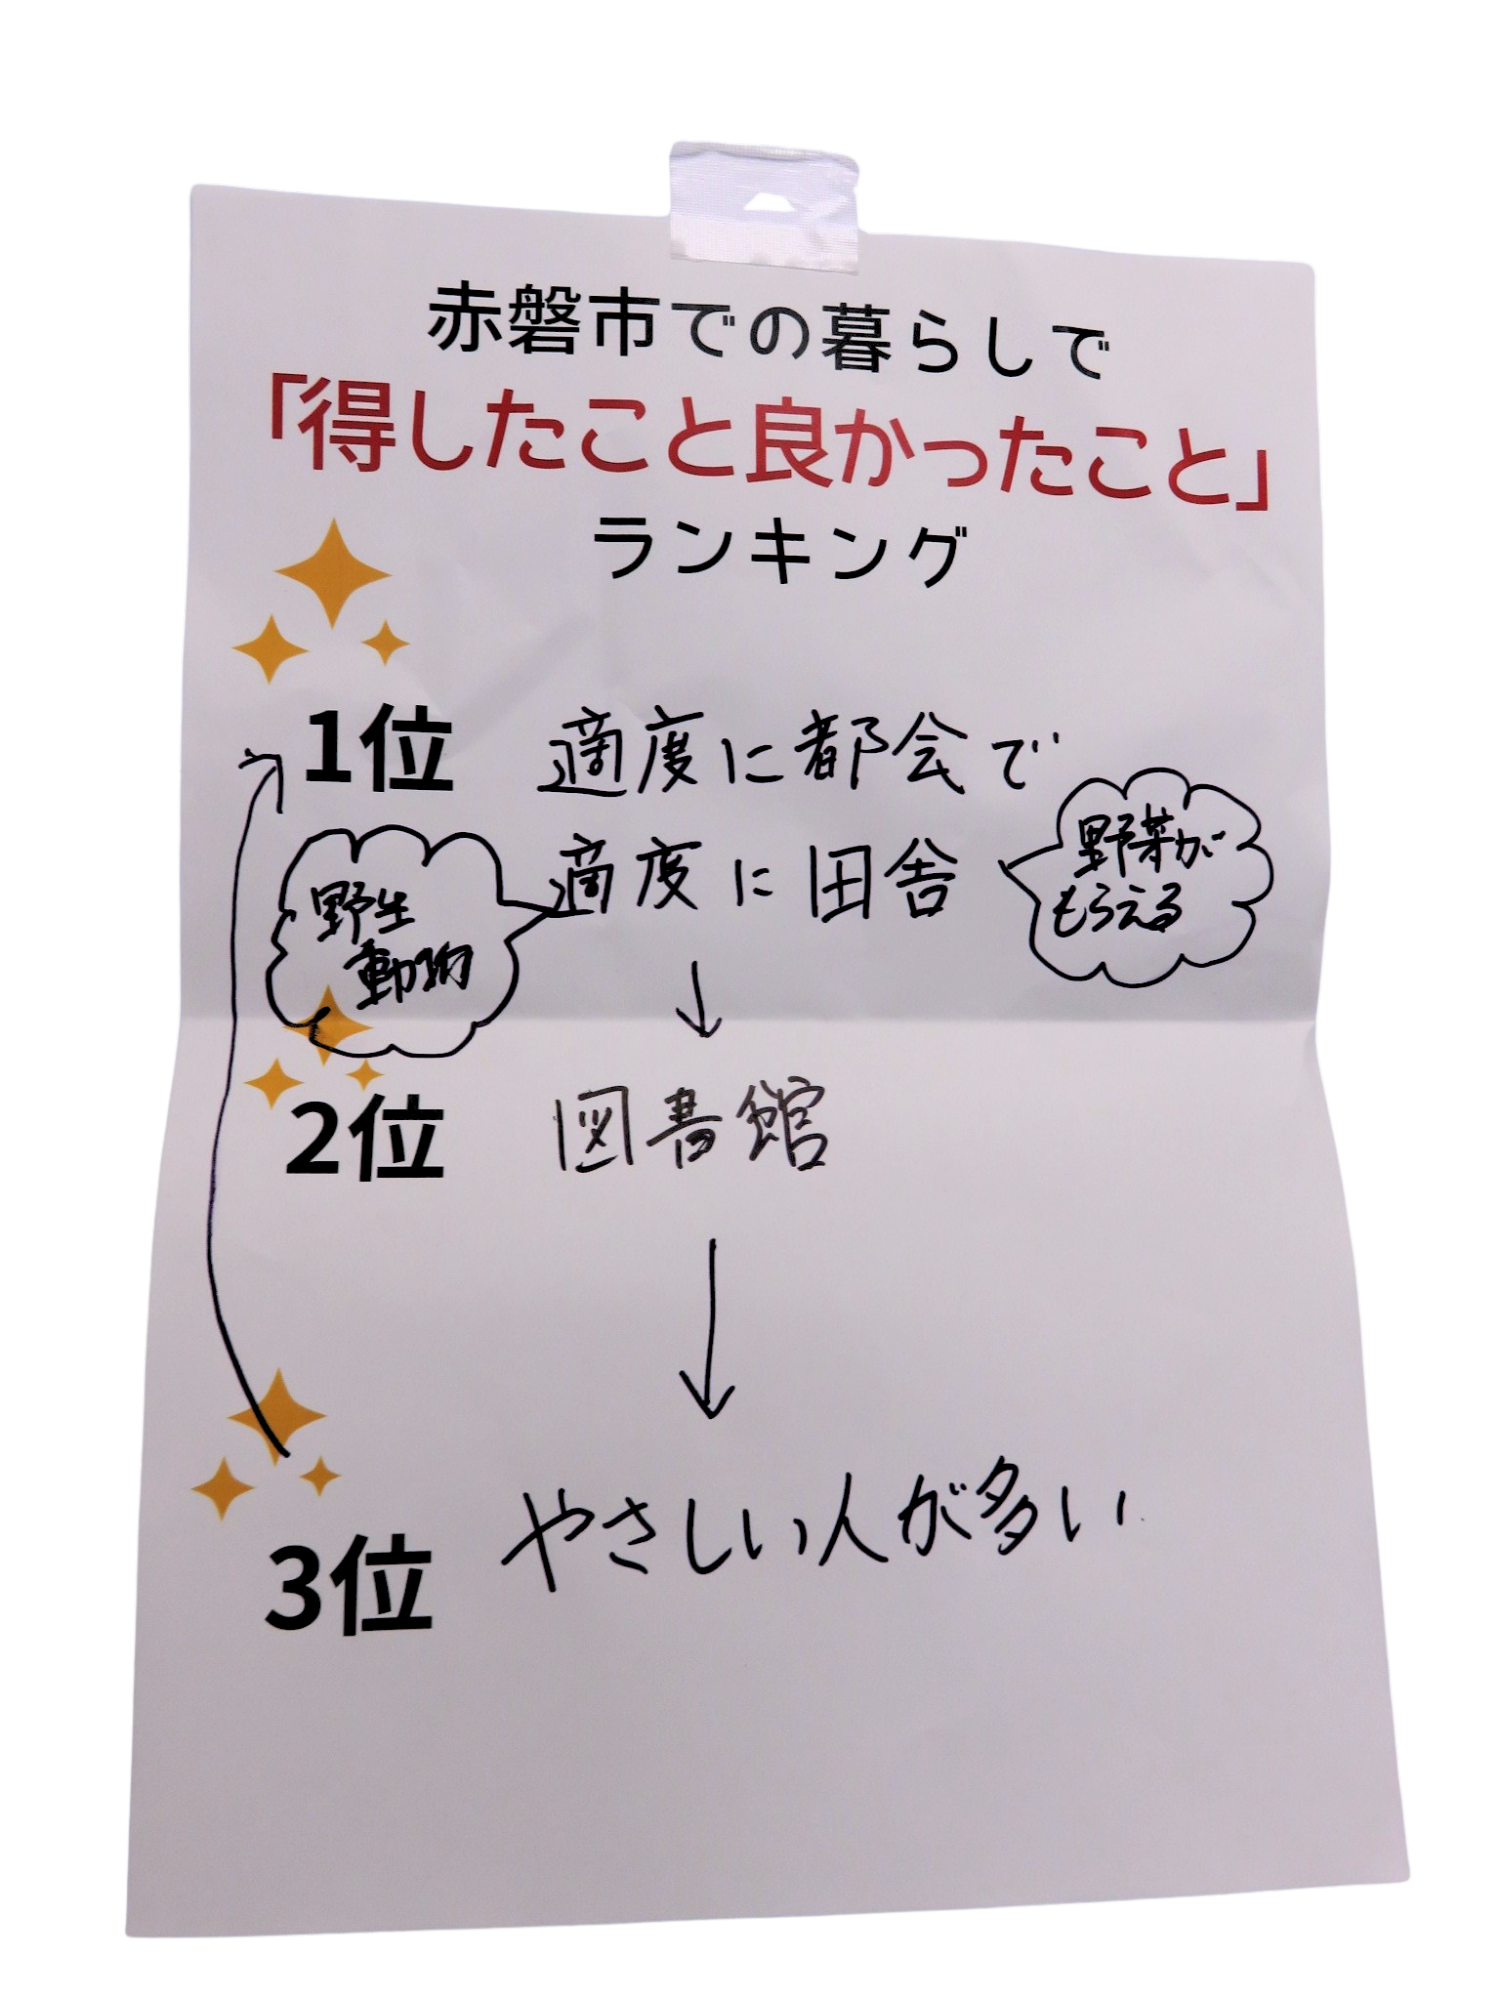 赤磐市での暮らしで
「得したこと良かったこと」
ランキング
1位
適度に都会で
適度に田舎
野菜が
もらえる
野生
動物
↓
2位
図書館
↓
3位
やさしい人が多い